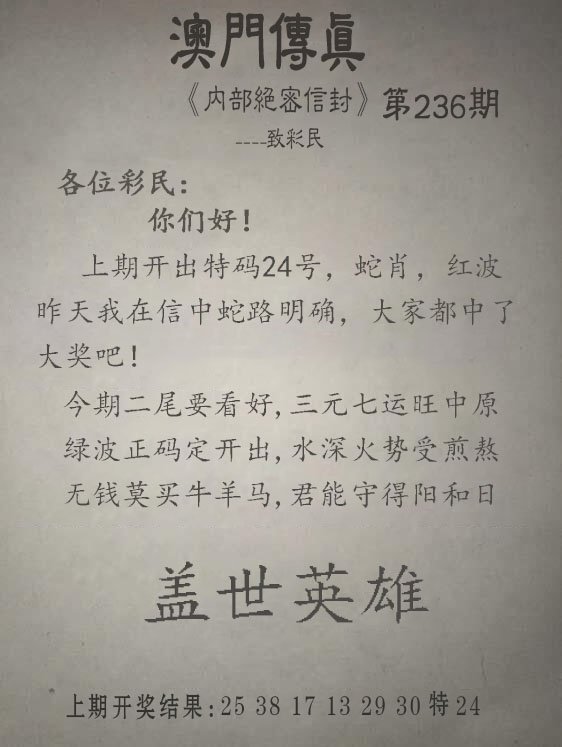 澳門傳眞
《内部絕密信封》第236期
----致彩民
各位彩民：
你们好！
上期开出特码24号，蛇肖，红波
昨天我在信中蛇路明确，大家都中了
大奖吧！
今期二尾要看好,三元七运旺中原
绿波正码定开出,水深火势受煎熬
无钱莫买牛羊马,君能守得阳和日
盖世英雄
上期开奖结果:25 38 17 13 29 30 特 24